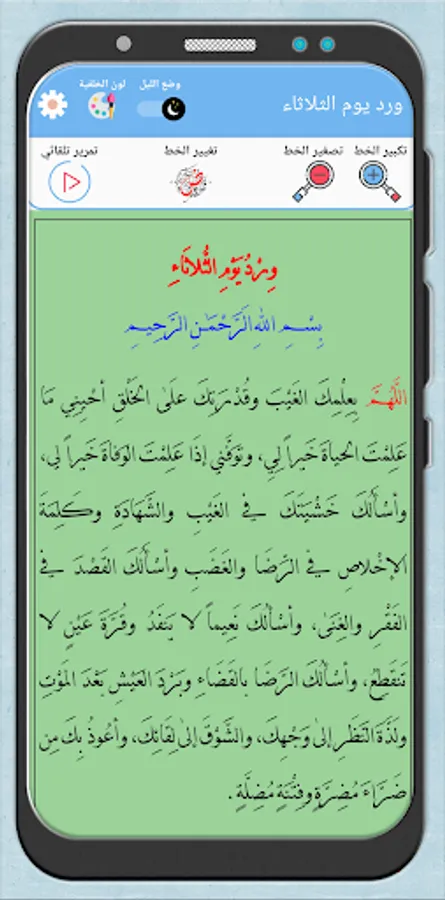 ورد يوم الثلاثاء
وضع الليل
لون الخلفية
تكبير الخط
تصغير الخط
تغيير الخط
تمرير تلقائي
وِرْدُ يَوْمِ الثُّلاثَاءِ
بِسْمِ اللهِ الرَّحْمَٰنِ الرَّحِيمِ
اللَّهُمَّ بِعِلْمِكَ الغَيْبَ وقُدْرَتِكَ عَلَى الخَلْقِ أَحْيِنِي مَا
عَلِمْتَ الحياةَ خَيراً لِي، وتَوَفَّنِي إذَا عَلِمْتَ الوَفاةَ خَيراً لي،
وأَسْأَلُكَ خَشْيَتَكَ في الغَيْبِ والشَّهَادَةِ وكَلِمَةَ
الإخْلاصِ في الرِّضَا والغَضَبِ وأَسْأَلُكَ القَصْدَ في
الفَقْرِ والغِنَى، وأَسْأَلُكَ نَعِيماً لا يَنْفَدُ وقُرَّةَ عَيْنٍ لا
تَنقَطِعُ، وأَسْأَلُكَ الرِّضَا بالقَضَاءِ وبَرْدَ العَيْشِ بَعْدَ المَوْتِ
ولَذَّةَ النَّظَرِ إلى وَجْهِكَ، والشَّوْقَ إلى لِقَائِكَ، وأَعُوذُ بِكَ مِن
ضَرَّاءَ مُضِرَّةٍ وفِتْنَةٍ مُضِلَّةٍ.